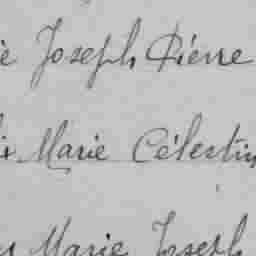 Joseph Pierre
Marie Célestin
Marie Joseph